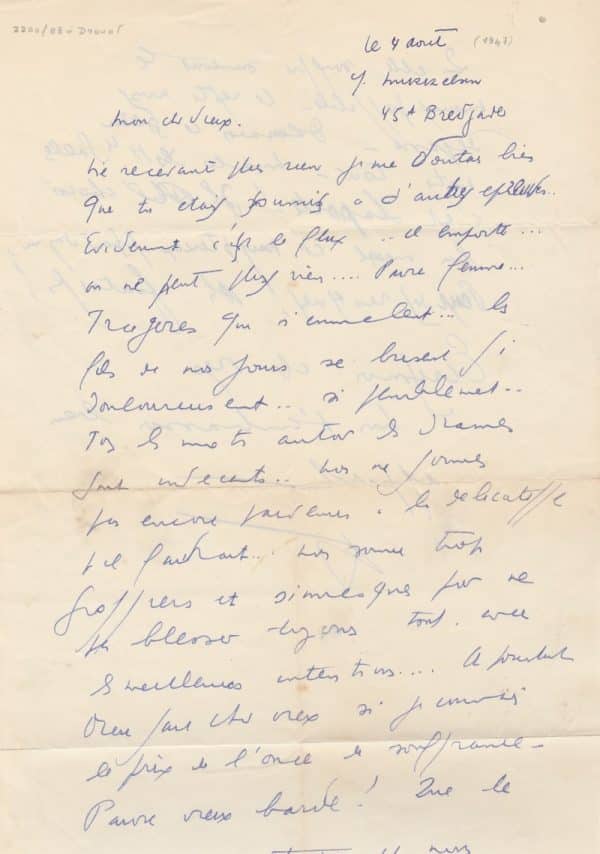 le 4 août (1947)
45A Bredgade
mon ch vieux.
Ne recevant plus rien je me doutais bien
Que tu étais soumis a d'autres épreuves..
Evidemment c'est le flux .. il emporte...
on ne peut plus rien.... Pauvre femme...
Tragédies qui s'emmêlent... les
fils de nos jours se brisent si
douloureusement.. si péniblement..
Tous les mots autour des drames
sont indécents.. nous ne sommes
pas encore parvenus à la délicatesse
qu'il faudrait... nous sommes trop
grossiers et simiesques pour ne
pas blesser disons tout avec
les meilleures intentions.... Et pourtant
Dieu sait cher vieux si je connais
le prix de l'once de souffrance -
Pauvre vieux barde! Que le